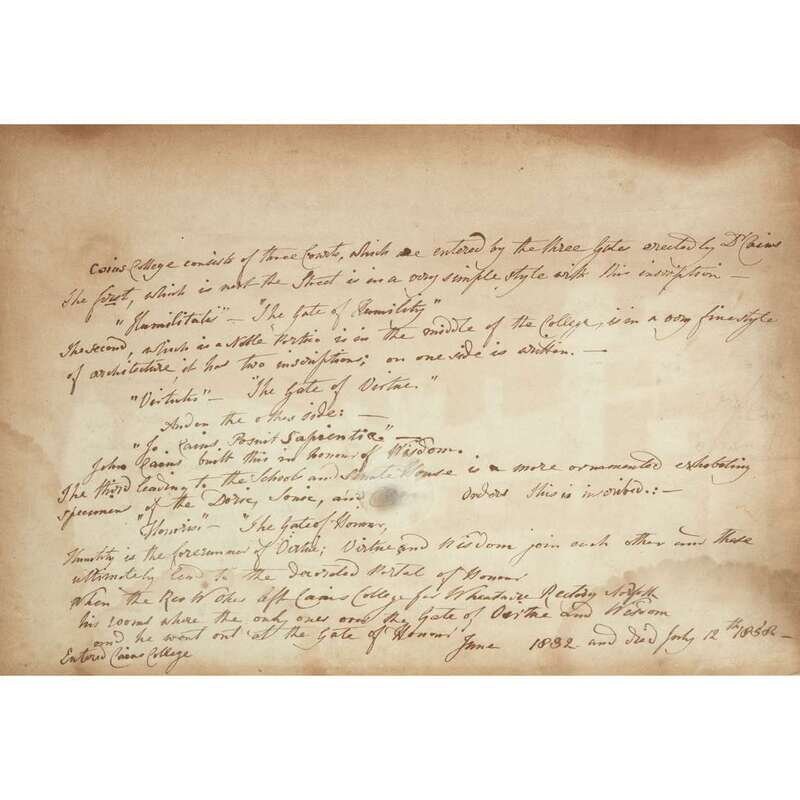 Caius College consists of three Courts, which are entered by the three Gates erected by Dr Caius
The first, which is next the Street is in a very simple style with this inscription —
"Humilitatis" — "The Gate of Humility"
The second, which is a Noble Portico is in the middle of the College, is in a very fine style
of architecture, it has two inscriptions; on one side is written. —
"Virtutis" — "The Gate of Virtue."
And on the other side: —
"Jo. Caius Posuit Sapientiæ"
John Caius built this in honour of Wisdom.
The third leading to the Schools and Senate House is a more ornamented exhibiting
specimen of the Doric, Ionic, and orders This is inscribed.: —
"Honoris" — "The Gate of Honour,
Humility is the forerunner of Virtue; Virtue and Wisdom join each other and these
ultimately lead to the decorated Portal of Honour
When the Rev W Okes left Caius College for Wheatacre Rectory Norfolk
his rooms where the only ones over the Gate of Virtue and Wisdom
and he went out 'at the Gate of Honour'
Entered Caius College June 1832 and died July 12th 1838 —